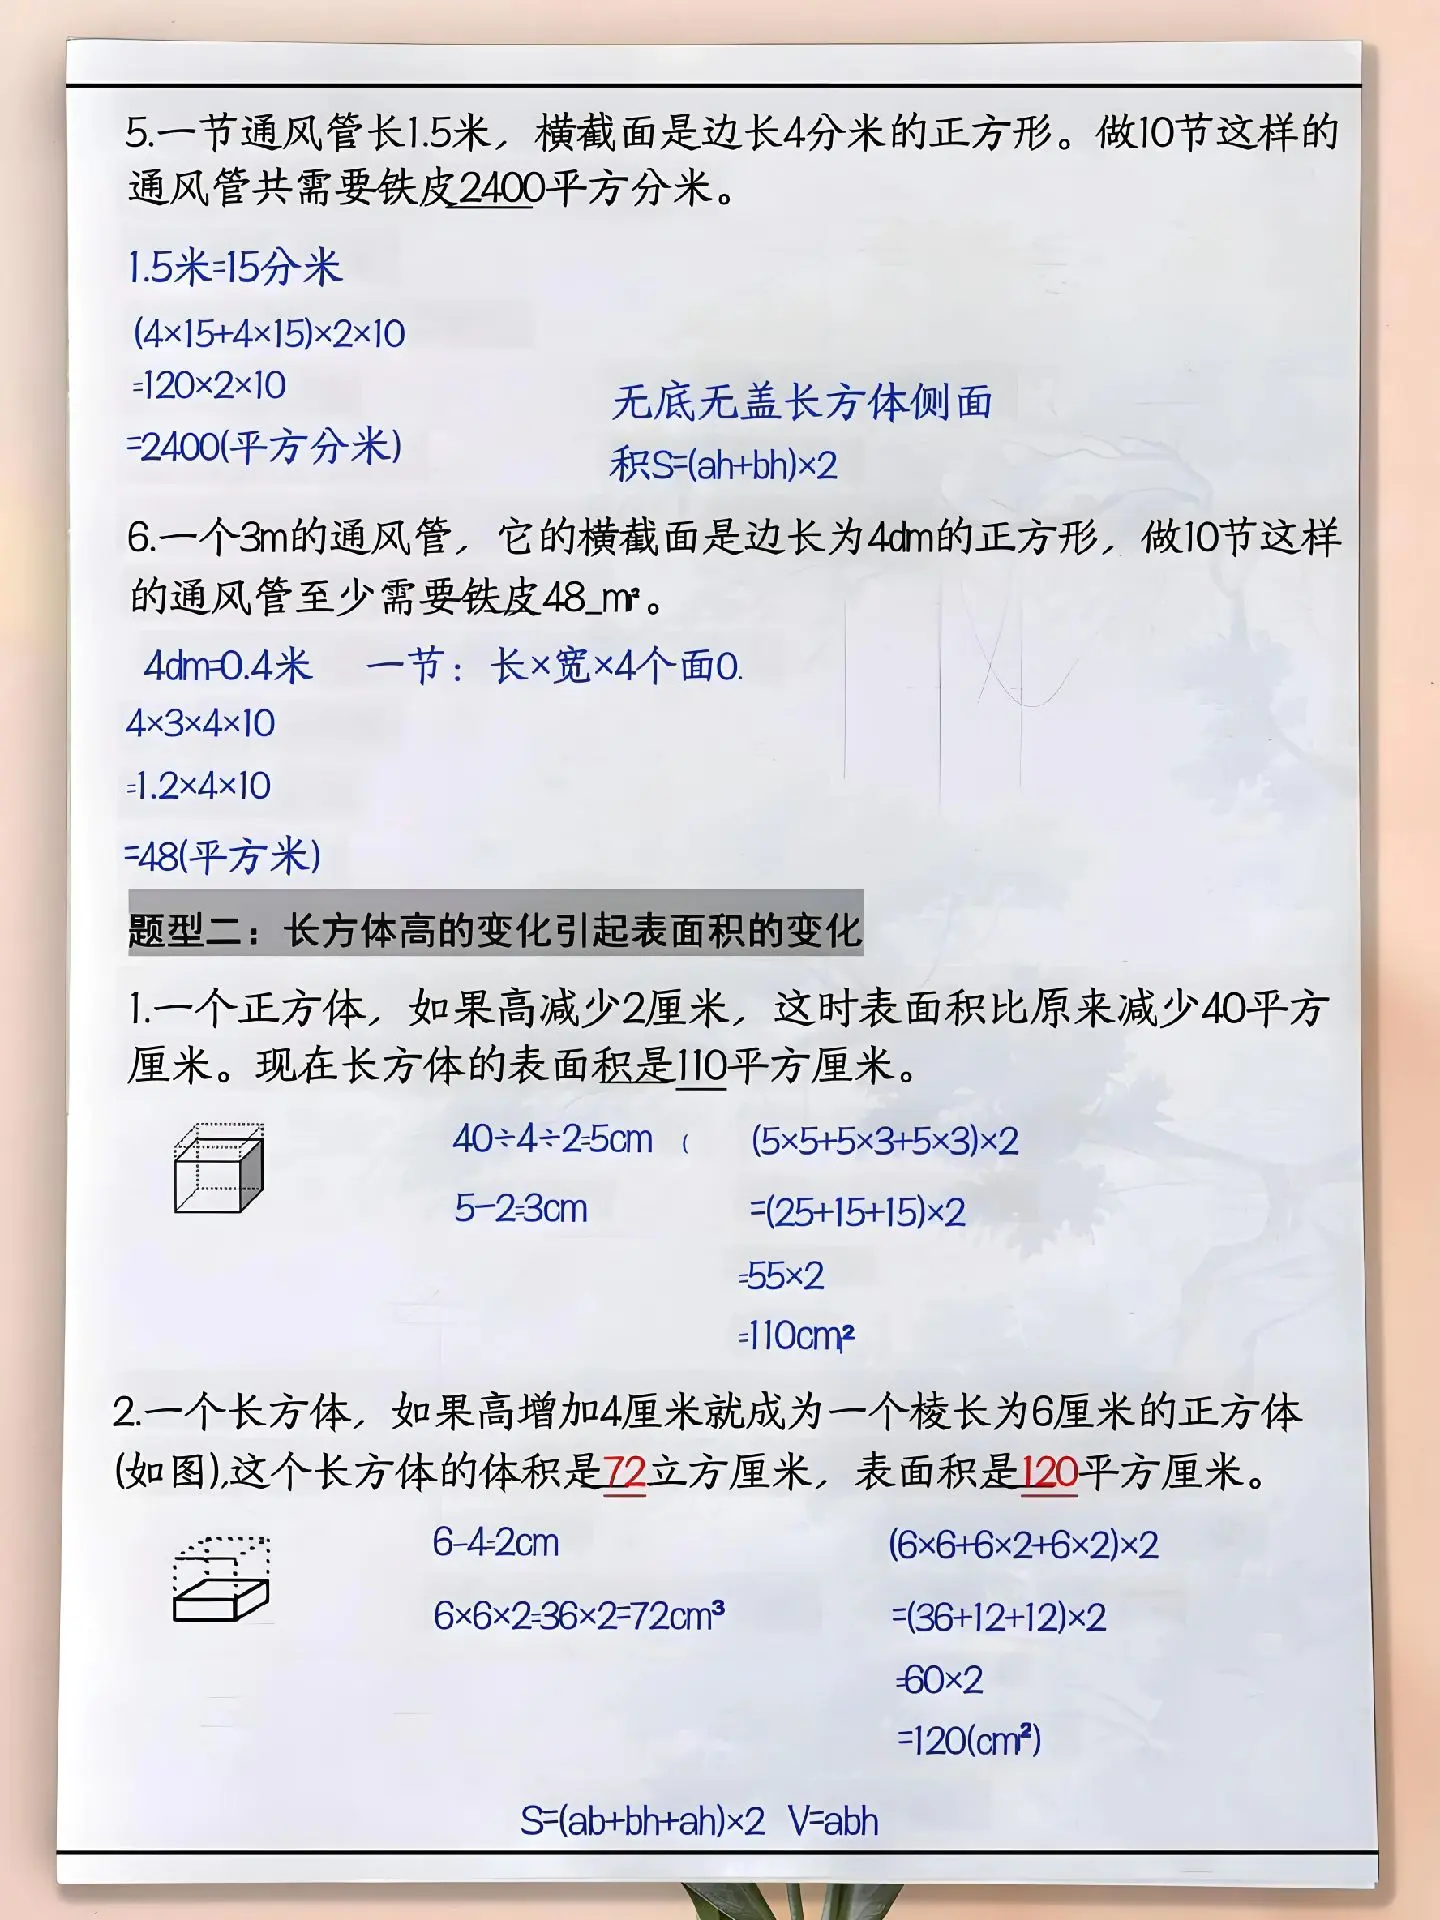 5.一节通风管长1.5米，横截面是边长4分米的正方形。做10节这样的
通风管共需要铁皮2400平方分米。
1.5米=15分米
(4×15+4×15)×2×10
=120×2×10
=2400(平方分米)
无底无盖长方体侧面
积S=(ah+bh)×2
6.一个3m的通风管，它的横截面是边长为4dm的正方形，做10节这样
的通风管至少需要铁皮48_m²。
4dm=0.4米 一节：长×宽×4个面0.
4×3×4×10
=1.2×4×10
=48(平方米)
题型二：长方体高的变化引起表面积的变化
1.一个正方体，如果高减少2厘米，这时表面积比原来减少40平方
厘米。现在长方体的表面积是110平方厘米。
40÷4÷2=5cm ( (5×5+5×3+5×3)×2
5-2=3cm =(25+15+15)×2
=55×2
=110cm²
2.一个长方体，如果高增加4厘米就成为一个棱长为6厘米的正方体
(如图),这个长方体的体积是72立方厘米，表面积是120平方厘米。
6-4=2cm (6×6+6×2+6×2)×2
6×6×2=36×2=72cm³ =(36+12+12)×2
=60×2
=120(cm²)
S=(ab+bh+ah)×2 V=abh